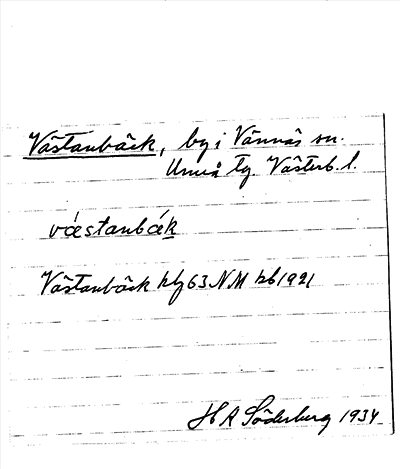 Västanbäck, by i Vännäs sn.
Umeå tg. Västerb. l.
væstanbæk
Västanbäck hfg 63 NM kb 1921
HA Söderberg 1934